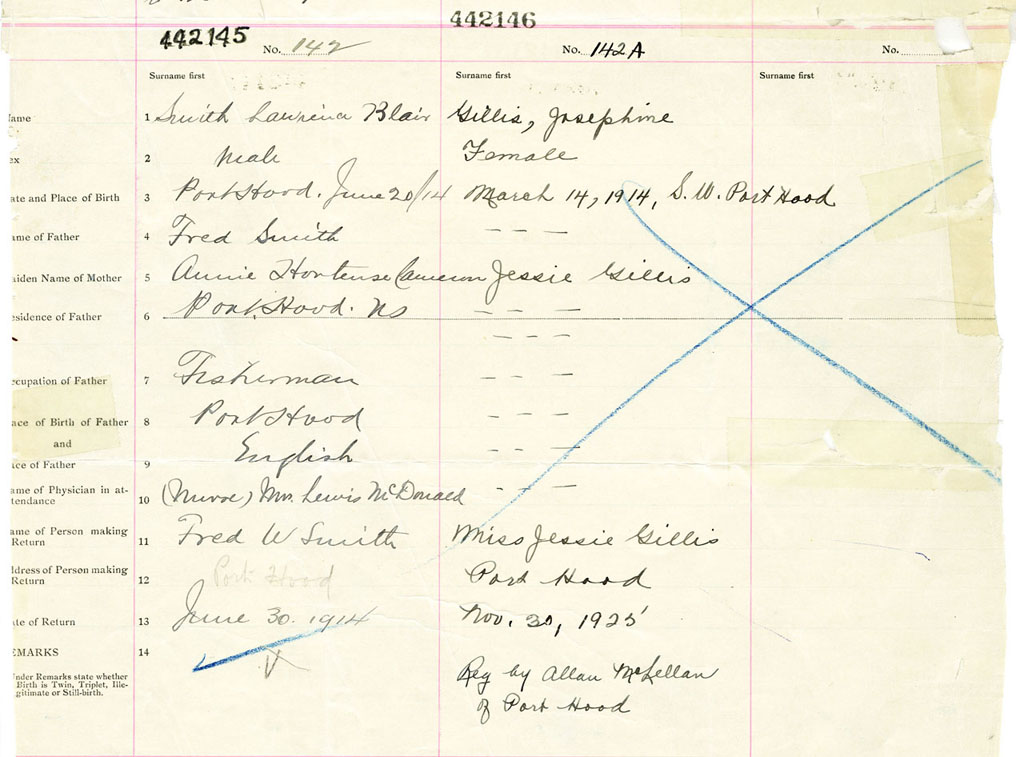 442145
442146
No. 142
No. 142A
No.
Surname first
Surname first
Surname first
ame
1
Smith Blair
Gillis, Josephine
ex
2
Male
Female
ate and Place of Birth
3
Port Hood. June 20/14
March 14, 1914, S.W. Port Hood
ame of Father
4
Fred Smith
— — —
aiden Name of Mother
5
Annie Hortense Cameron
Jessie Gillis
esidence of Father
6
Port Hood. NS
— — —
— — —
ccupation of Father
7
Fisherman
— — —
ace of Birth of Father
8
Port Hood
— — —
and
ace of Father
9
English
— — —
ame of Physician in at-
tendance
10
(Nurse) Mrs. Lewis McDonald
— — —
ame of Person making
Return
11
Fred W Smith
Miss Jessie Gillis
ddress of Person making
Return
12
Port Hood
Port Hood
ate of Return
13
June 30. 1914
Nov. 30, 1925
EMARKS
14
nder Remarks state whether
Birth is Twin, Triplet, Ille-
gitimate or Still-birth.
Reg by Allan McLellan
of Port Hood